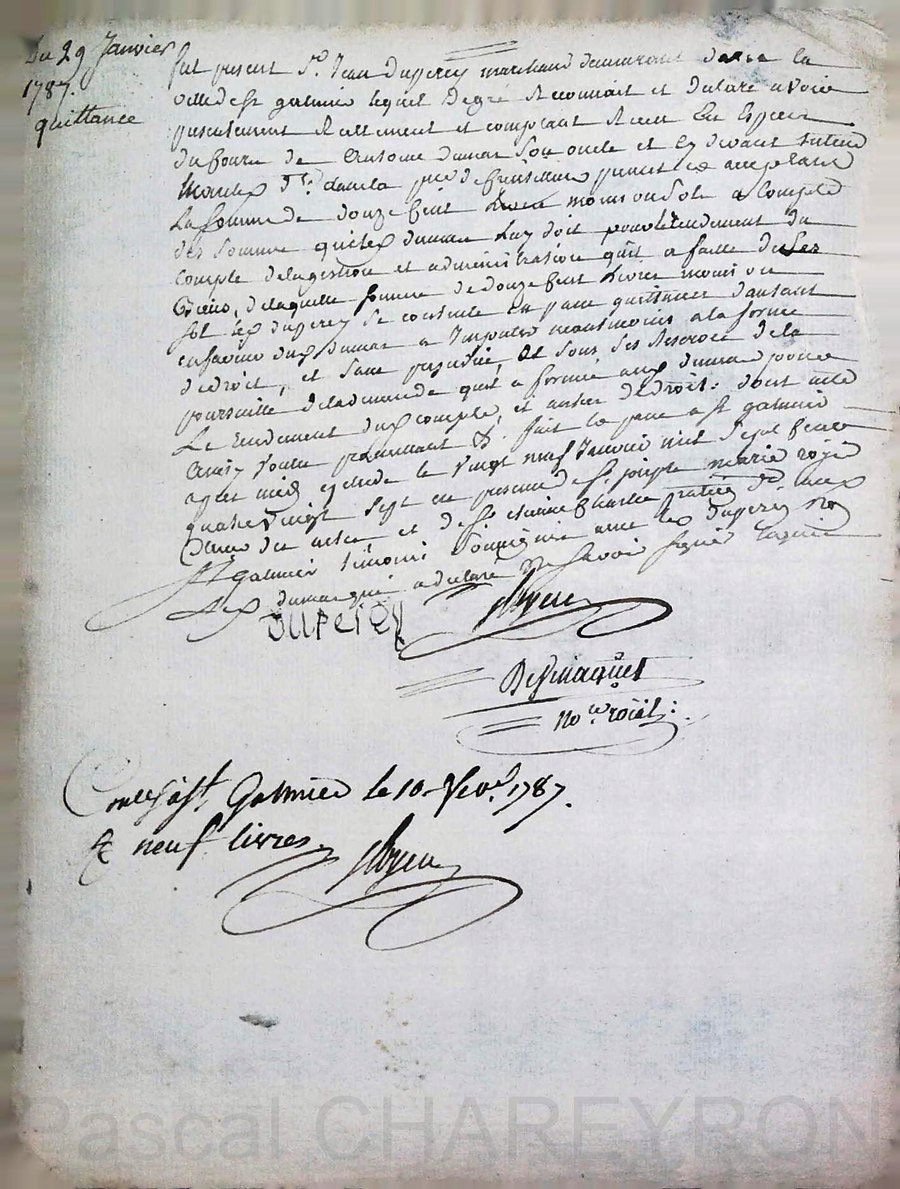 Du 29 Janvier
1787.
quittance
fut présent Sr. Jean Duperey marchand demeurant dans la
ville de st galmier lequel de gré reconnait et déclare avoir
présentement réellement et comptant reçu en espèces
du Sr Antoine dumas son oncle et cy devant tuteur
présent et acceptant
la somme de douze cent livres moins un sols a compte
des somme que led dumas luy doit pour le rendement du
compte de la gestion et administration qu'il a faitte de ses
biens, de laquelle somme de douze cent livres moins un
sol led duperey se contente en passe quittance d'autant
en faveur dud dumas a imputer a la forme
de droit, et sans préjudice, et sous ses reserves de la
poursuitte de la demande qu'il a formée aud dumas pour
le rendement dud compte, et autres de droit: dont acte
ainsy voulu promettant &. fait et passé a st galmier
après midy étude le vingt neuf janvier mil sept cent
quatre vingt sept en présence de Sr joseph marie royer
clerc et de Sr étienne praticien de
St galmier témoins soussignés avec led duperey non
led dumas qui a déclaré ne savoir signer requis
duperey
Royer
nore roial:
Conlé à st. Galmier le 10 fevr. 1787.
Rç neuf livres.
Royer
Pascal CHAREYRON